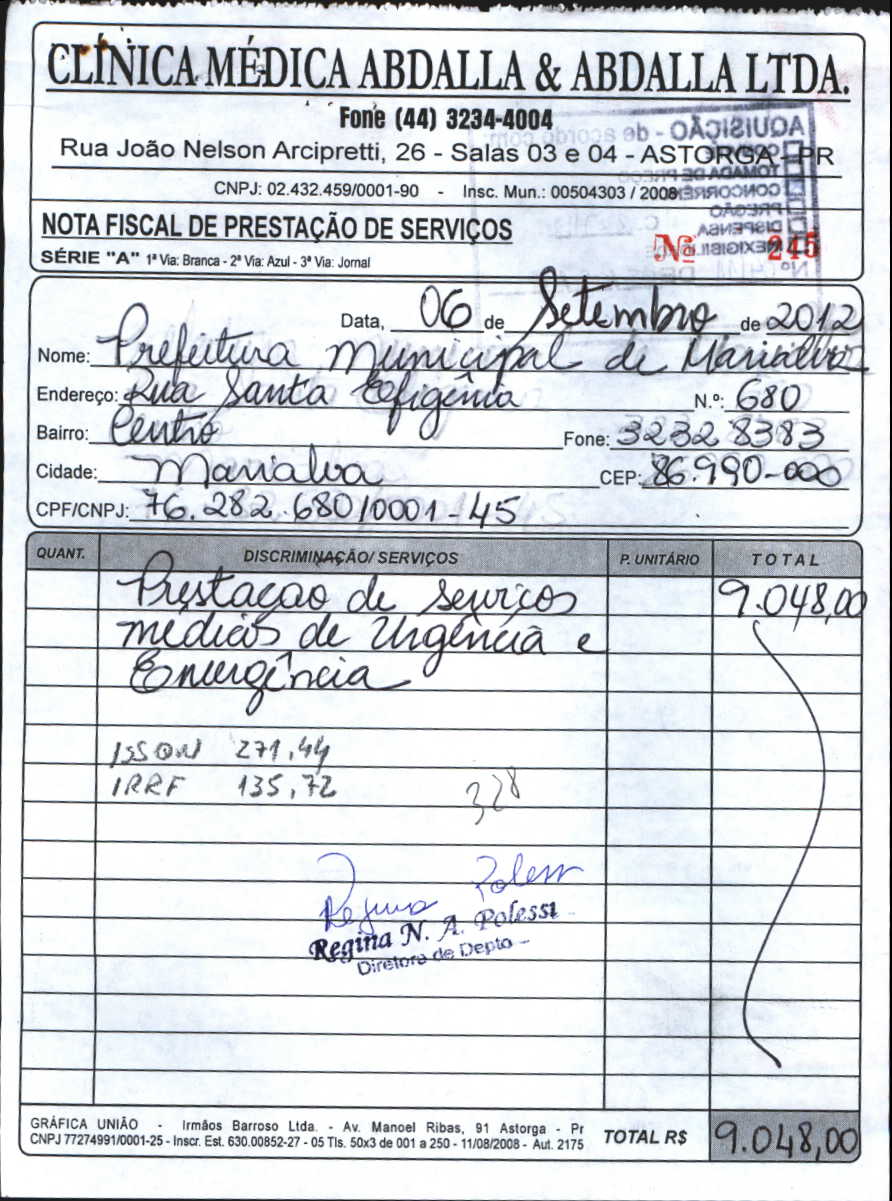 CLÍNICA MÉDICA ABDALLA & ABDALLA LTDA.
Fone (44) 3234-4004
Rua João Nelson Arcipretti, 26 - Salas 03 e 04 - ASTORGA - PR
CNPJ: 02.432.459/0001-90 - Insc. Mun.: 00504303 / 2008
AQUISIÇÃO - de acordo com:
CONVITE
TOMADA DE PREÇO
CONCORRÊNCIA
PREGÃO
DISPENSA
INEXIGIBILIDADE
Nº
NOTA FISCAL DE PRESTAÇÃO DE SERVIÇOS
SÉRIE "A" 1ª Via: Branca - 2ª Via: Azul - 3ª Via: Jornal
Nº 245
Data, 06 de Setembro de 2012
Nome: Prefeitura Municipal de Marialva
Endereço: Rua Santa Efigênia N.º: 680
Bairro: Centro Fone: 3232 8383
Cidade: Marialva CEP: 86.990-000
CPF/CNPJ: 76.282.680/0001-45
QUANT. DISCRIMINAÇÃO/SERVIÇOS P. UNITÁRIO TOTAL
Prestação de serviços 9.048,00
médicos de Urgência e
Emergência
ISSQN 271,44
IRRF 135,72
328
Regina Polessi
Regina N. A. Polessi
Diretora de Depto
GRÁFICA UNIÃO - Irmãos Barroso Ltda. - Av. Manoel Ribas, 91 Astorga - Pr
CNPJ 77274991/0001-25 - Inscr. Est. 630.00852-27 - 05 Tls. 50x3 de 001 a 250 - 11/08/2008 - Aut. 2175
TOTAL R$ 9.048,00